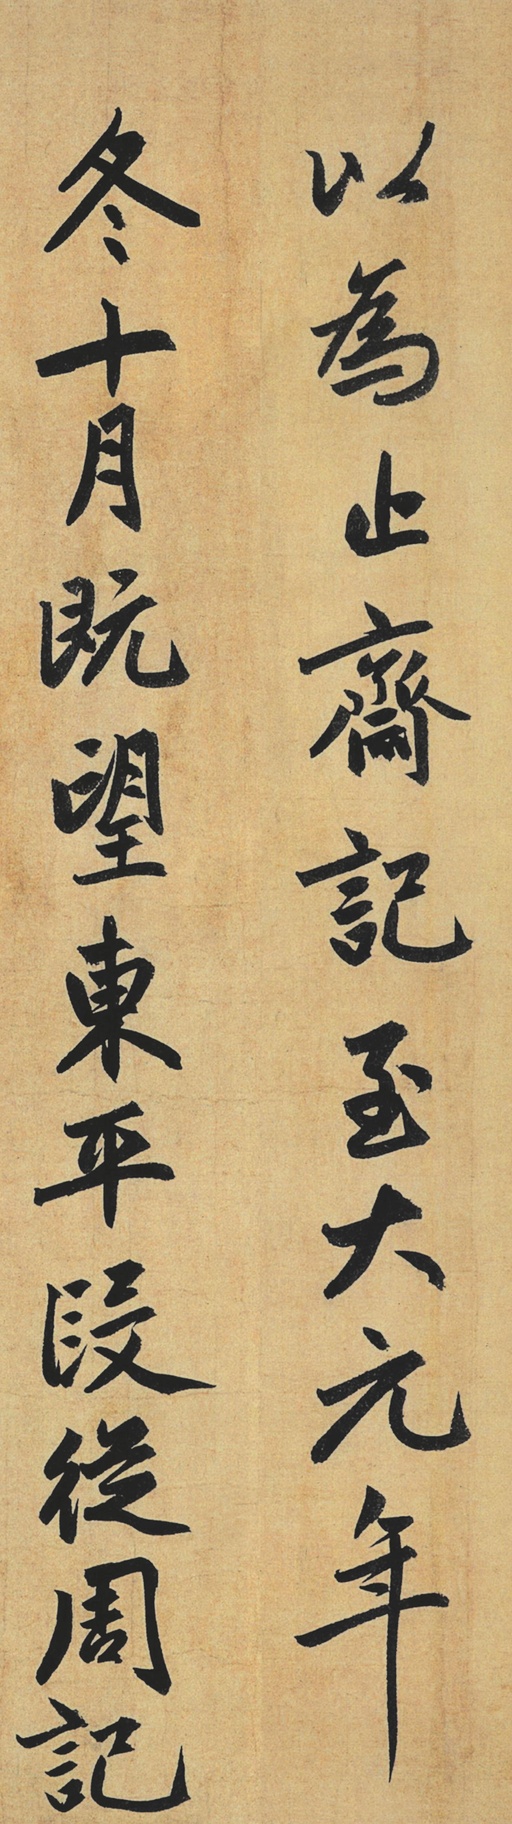 以為止齋記至大元年
冬十月既望東平段從周記